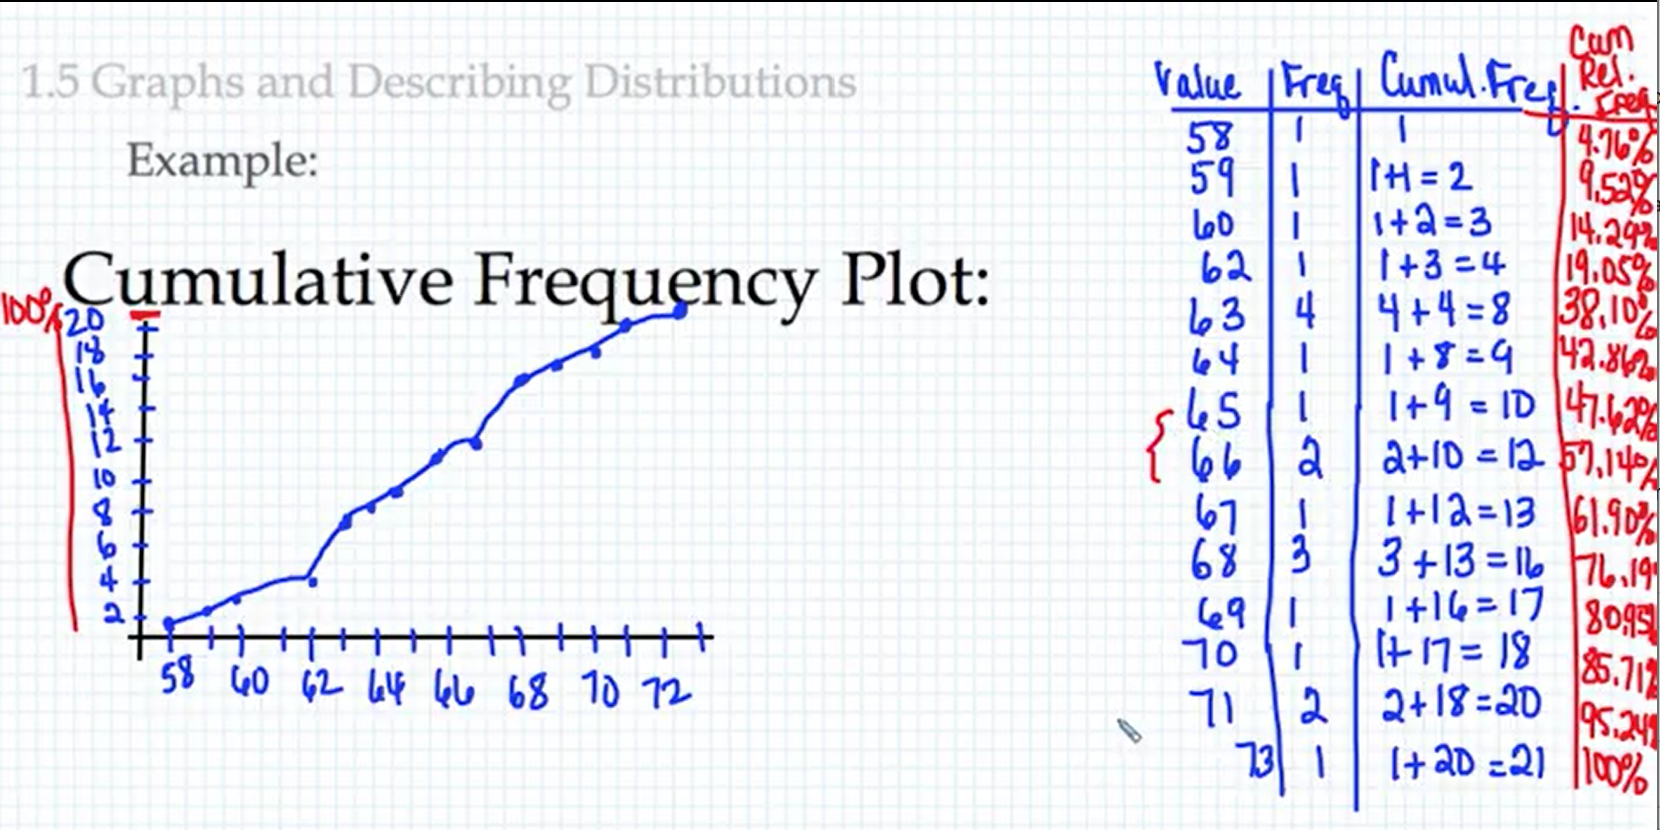 1.5 Graphs and Describing Distributions
Example:
Cumulative Frequency Plot:
100%
20
18
16
14
12
10
8
6
4
2
58 60 62 64 66 68 70 72
Value Freq Cumul. Freq. Cum Rel. Freq
58 1 1 4.76%
59 1 1+1=2 9.52%
60 1 1+2=3 14.29%
62 1 1+3=4 19.05%
63 4 4+4=8 38.10%
64 1 1+8=9 42.86%
65 1 1+9=10 47.62%
66 2 2+10=12 57.14%
67 1 1+12=13 61.90%
68 3 3+13=16 76.19
69 1 1+16=17 80.95
70 1 1+17=18 85.71%
71 2 2+18=20 95.24%
73 1 1+20=21 100%